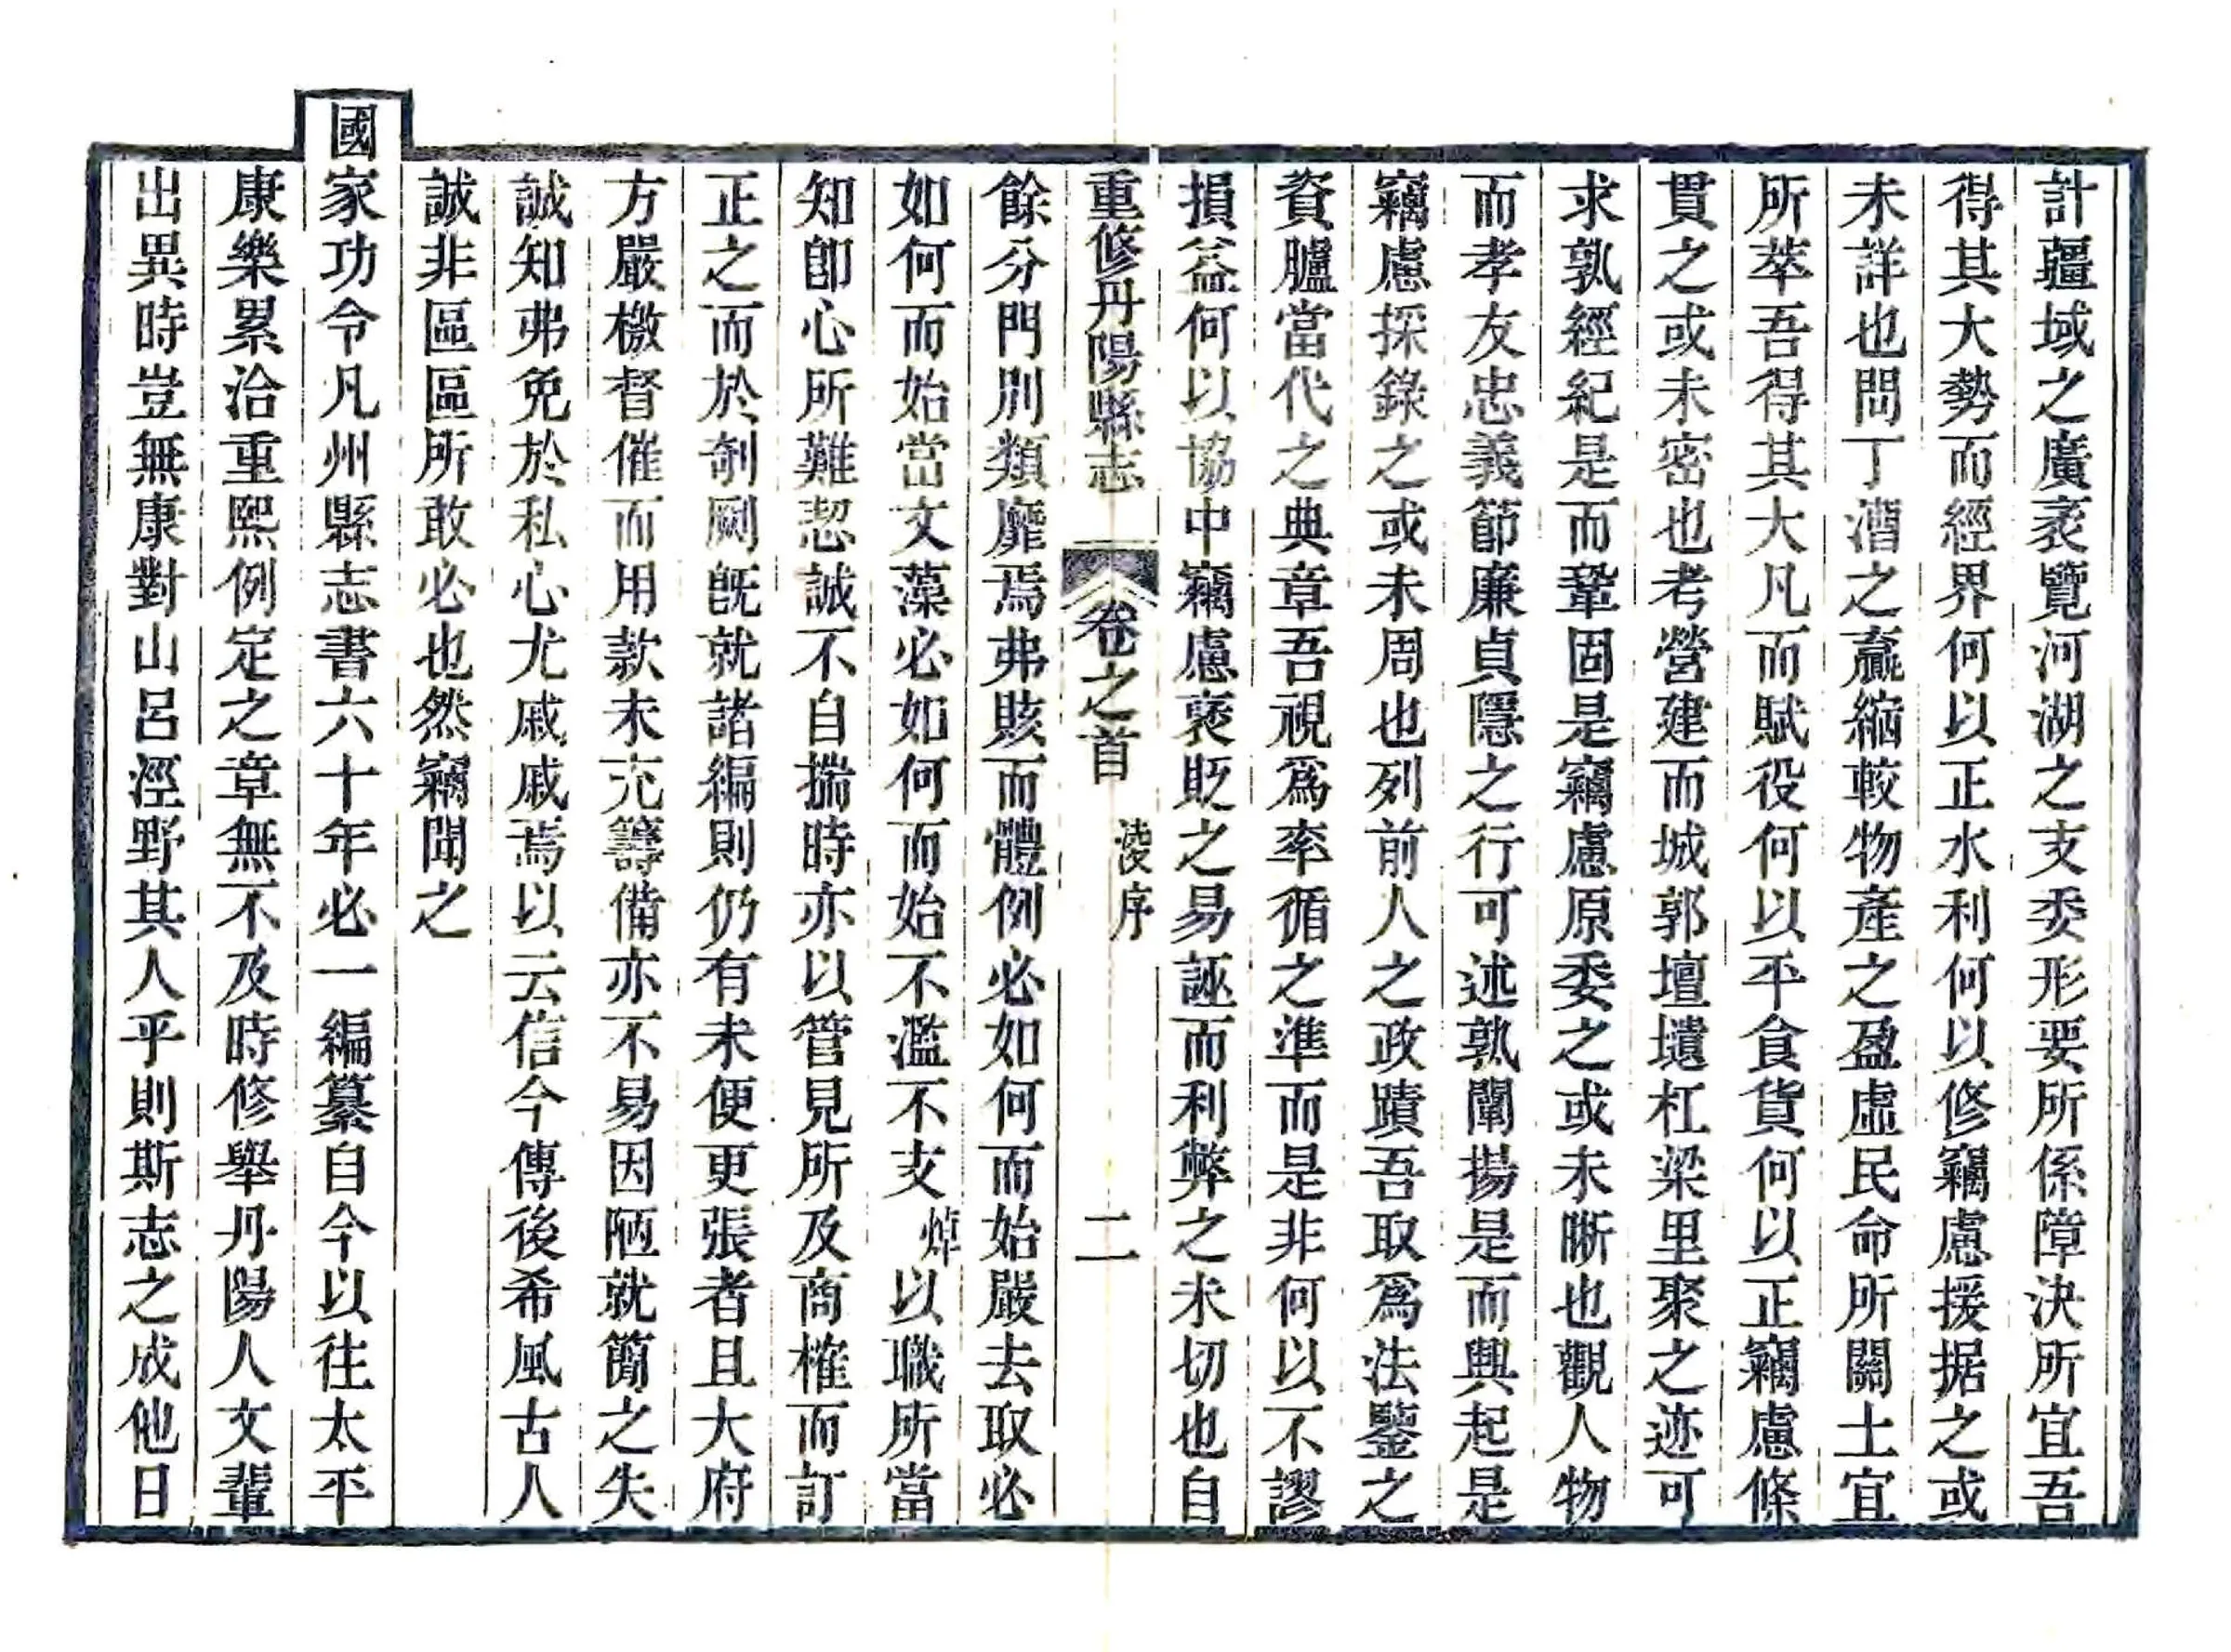 計疆域之廣袤覽河湖之支委形要所係障決所宜吾
得其大勢而經界何以正水利何以修竊慮援据之或
未詳也問丁漕之贏縮較物產之盈虛民命所關土宜
所萃吾得其大凡而賦役何以平食貨何以正竊慮條
貫之或未密也考營建而城郭壇壝杠梁里聚之迹可
求孰經紀是而鞏固是竊慮原委之或未晰也觀人物
而孝友忠義節廉貞隱之行可述孰闡揚是而興起是
竊慮採錄之或未周也列前人之政蹟吾取爲法鑒之
資臚當代之典章吾視爲率循之準而是非何以不謬
損益何以協中竊慮褒貶之易誣而利弊之未切也自
重修丹陽縣志 卷之首 淩序 二
餘分門別類靡焉弗賅而體例必如何而始嚴去取必
如何而始當文藻必如何而始不濫不支焯以職所當
知卽心所難恝誠不自揣時亦以管見所及商榷而訂
正之而於剞劂旣就諸編則仍有未便更張者且大府
方嚴檄督催而用款未充籌備亦不易因陋就簡之失
誠知弗免於私心尤戚戚焉以云信今傳後希風古人
誠非區區所敢必也然竊聞之
國家功令凡州縣志書六十年必一編纂自今以往太平
康樂累洽重熙例定之章無不及時修舉丹陽人文輩
出異時豈無康對山呂涇野其人乎則斯志之成他日